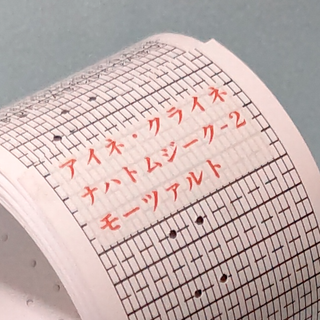 アイネ・クライネ
ナハトムジーク-2
モーツァルト